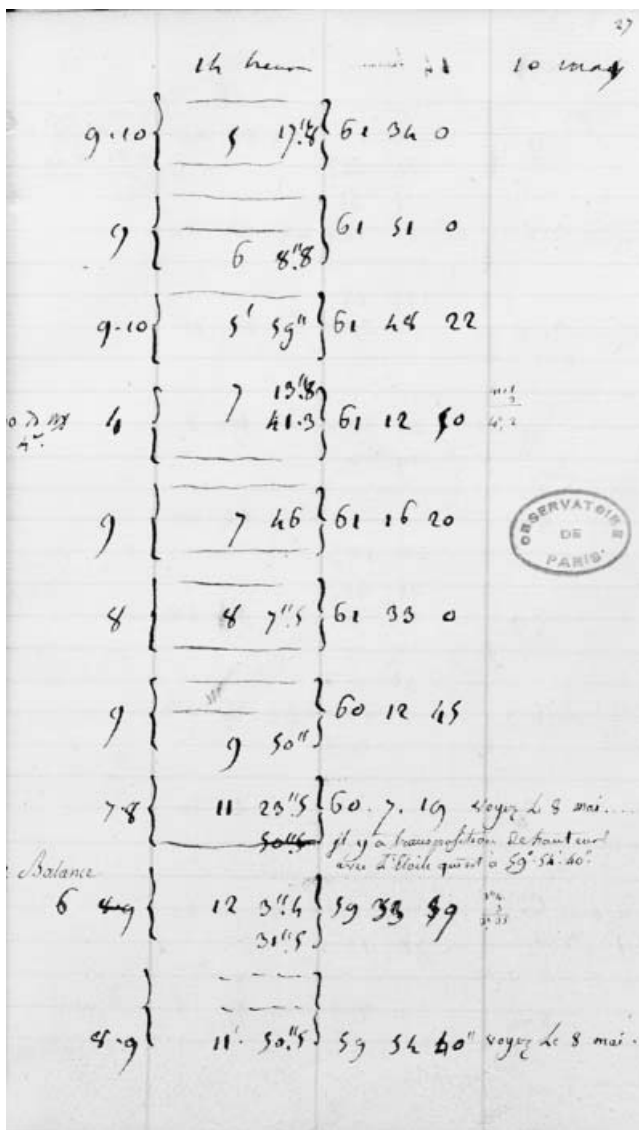 27
14 heures 14 10 may
9.10 5 17".8 61 34 0
9 61 51 0
6 8".8
9.10 5' 59" 61 48 22
7 13".8
4 41.3 61 12 50
9 7 46 61 16 20
OBSERVATOIRE
DE
PARIS.
8 8 7".5 61 33 0
9 60 12 45
9 50"
7.8 11 23".5 60.7.19 voyez le 8 mai.....
50".5 il y a transposition de hauteur
avec l'étoile qui est à 59° 54' 40"
Balance
6 8.9 12 3".4 59 53 59
31".5
8.9 11' 50".5 59 54 40" voyez le 8 mai.